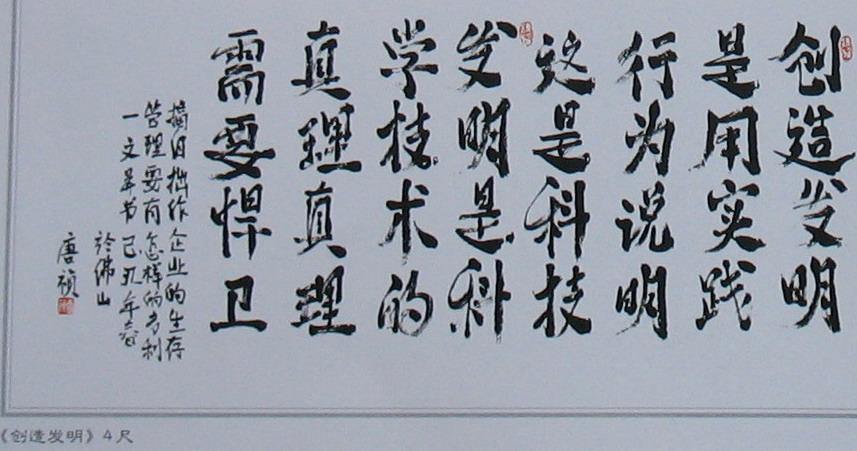 创造发明
是用实践
行为说明
这是科技
发明是科
学技术的
真理真理
需要悍卫
摘自拙作企业的生存
管理要有怎样的专利
一文并书己丑年春
於佛山
唐祯
《创造发明》4尺